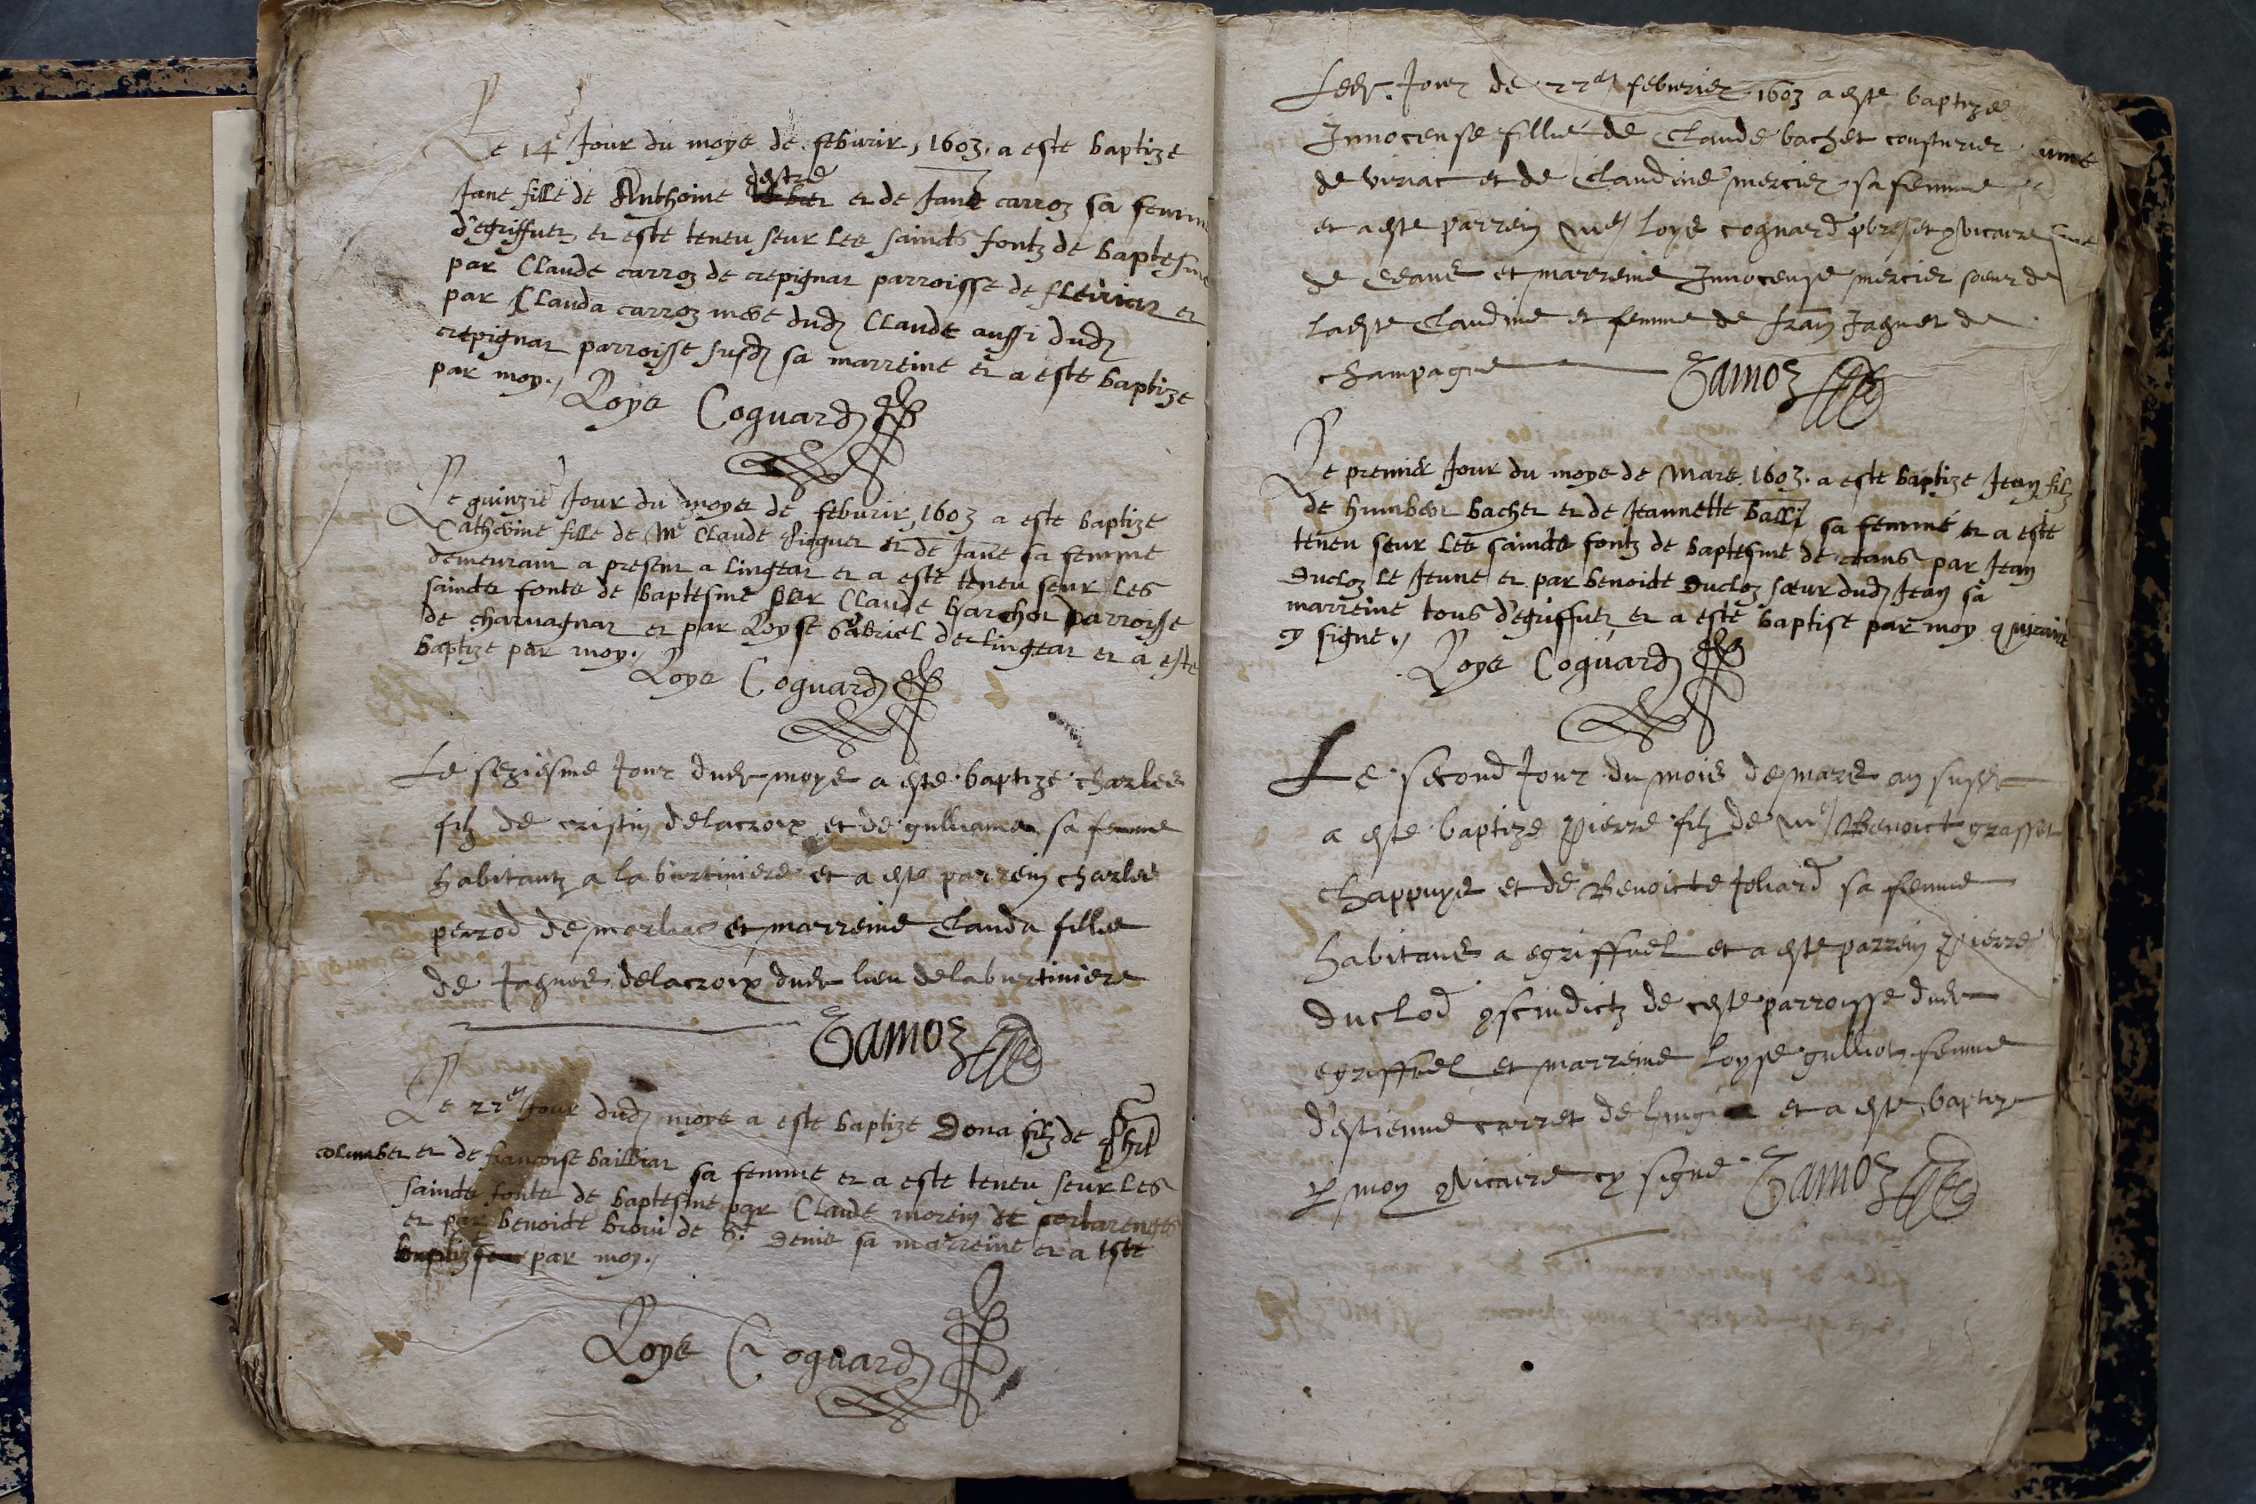 Le 14e Jour du moys de feburir, 1603. a este baptize
Jane fille de Anthoine destre et de Jane carroz sa femme
d'egriffuez et este teneu seur les saincts fontz de baptesme
par Claude carroz de crepignat parroisse de fleuriat et
par Clauda carroz dudz Claude aussi dudz
crepignat parroisse susdz sa marreine et a este baptize
par moy.
Loys Coguard
Le quinzie Jour du moys de feburir, 1603 a este baptize
Catherine fille de Me Claude et de Jane sa femme
demeurant a present a lingeat et a este teneu seur les
saincts fonts de baptesme par Claude barchot parroisse
de charnagnat et par Loyse Gabriel de lingeat et a este
baptize par moy.
Loys Coguard
Le seziesme Jour dudt moys a este baptize charles
filz de cristin delacroix et de sa femme
habitantz a la burtiniere et a este parrein charles
perrod de marliac et marreine Clauda fillie
de Jaques delacroix dudt lieu delaburtiniere
Ramoz
Le 22e Jour dudz moys a este baptize Dona filz de Phil
columber et de francoise bailliat sa femme et a este teneu seur les
saincts fonts de baptesme par Claude morein de
et par benoicte broin de St Denis sa marreine et a este
par moy.
Loys Coguard
Ledt Jour de 22e feburier 1603 a este baptize
Innocense fillie de Claude bachet cousturier
de viriac et de Claudine mercier sa femme
et a este parrein me loys cognard pbre et vicaire
de Ceans et marreine Innocense mercier soeur de
Claudine et femme de Jaquet de
champagne Ramoz
Le premier Jour du moys de Mars. 1603. a este baptize Jean filz
de humbert bachet et de Jeannette balli sa femme et a este
teneu seur les saincts fontz de baptesme de ceans par Jean
Ducloz le Jeune et par benoicte Ducloz sœur dudz Jean sa
marreine tous d'egriffuez et a este baptise par moy
cy signe,
Loys Coguard
Le second Jour du mois de mars an susdt
a este baptize Pierre filz de me Benoict grasset
chappuys et de Benoicte Joliard sa femme
habitans a egriffuel et a este parrein Pierre
duclod scindictz de ceste parroisse dudt
egriffuel et marreine loyse gulliot femme
d'estienne carret de et a este baptize
p moy vicaire cy signe Ramoz